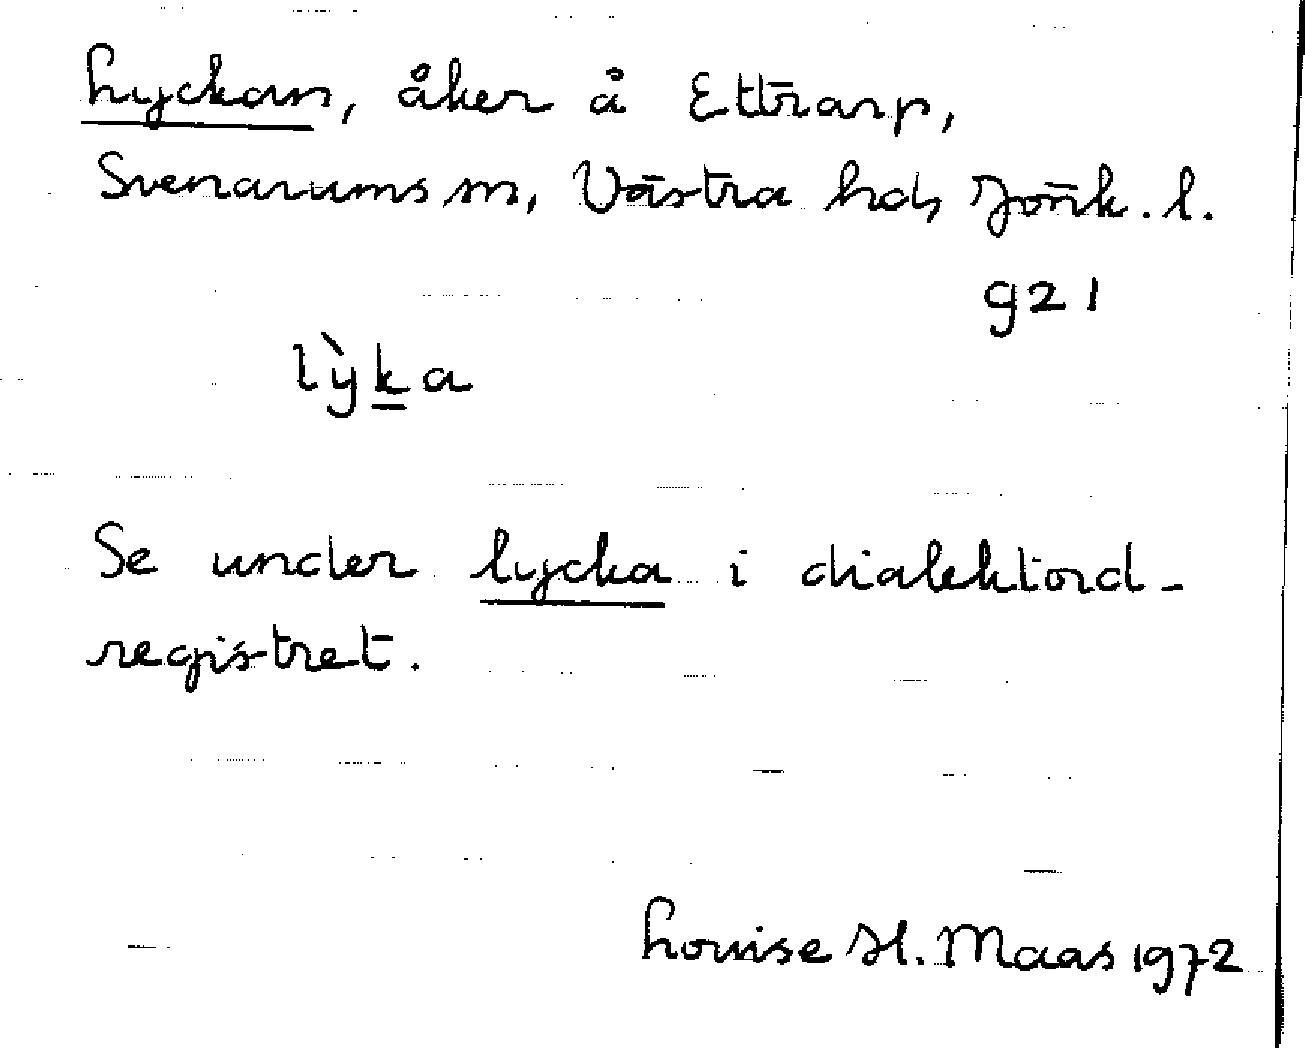 Lyckan, åker å Ettrarp,
Svenarums sn, Västra hd, Jönk. l.
921
lỳka
Se under lycka i dialektord-
registret.
Louise H. Maas 1972